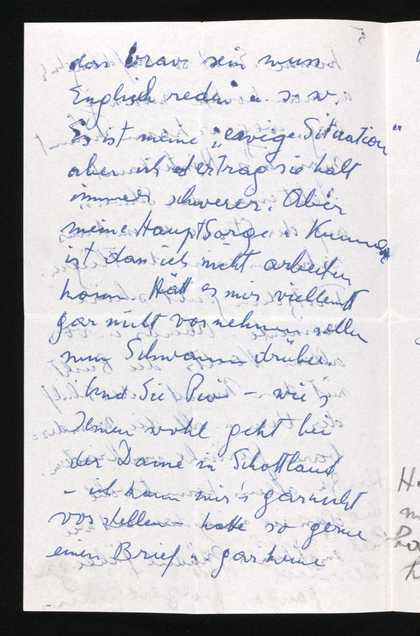 dan brav sein muss
Englisch reden u. s. w.
Es ist meine „ewige Situation"
aber ich ertrag sie halt
immer schwerer. Aber
meine Hauptsorge u. Kummer
ist dass ich nicht arbeiten
kann. Hätt es mir vielleicht
gar nicht vornehmen sollen
nun drüben
Und Sie – wie's
Ihnen wohl geht bei
der Dame in Schottland
– ich kann mir's gar nicht
vorstellen – hätte so gerne
einen Brief u gar keine